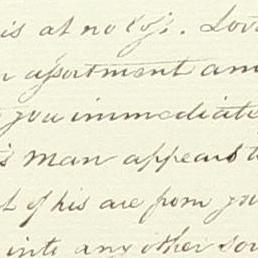 is at no loss. Lov
assortment and
you immediate
is man appears t
t of his are from you
into any other sou